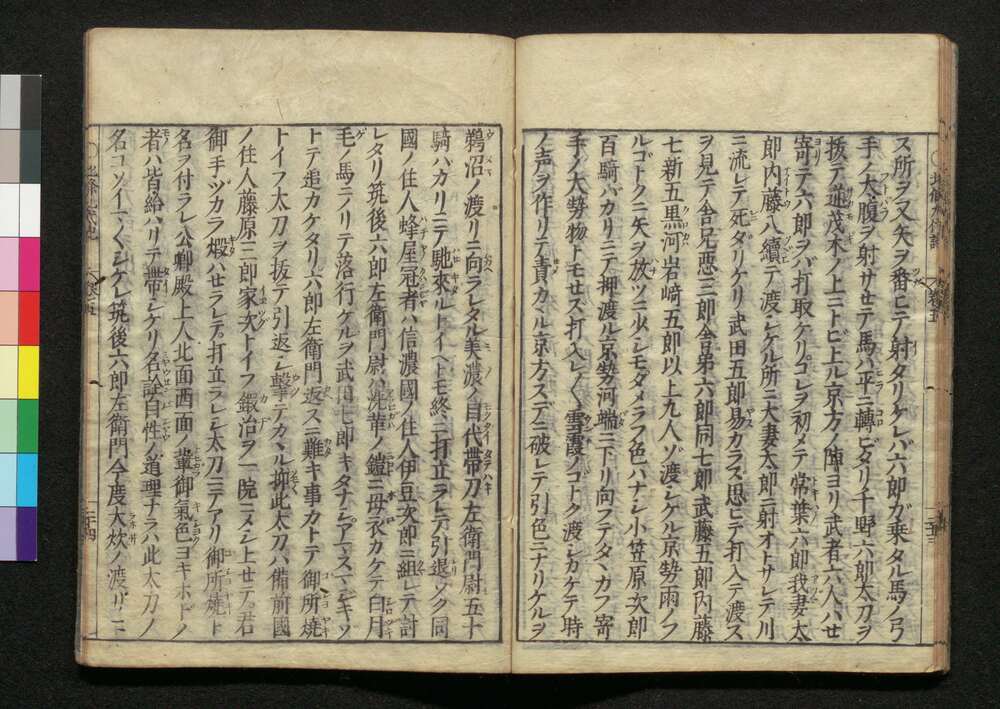 ス所ヲ又矢ヲ番ヒテ射タリケレバ六郎ガ乗タル馬ノ弓
手ノ太腹ヲ射サセテ馬ハ平ニ轉ビタリ千野六郎太刀ヲ
抜テ逆茂木ノ上ニトビ上ル京方ノ陣ヨリ武者六人ハセ
寄テ六郎ヲバ打取ケリコレヲ初メテ常葉六郎我妻太
郎内藤八續テ渡シケル所ニ大妻太郎ニ射オトサレテ川
ニ流レテ死ダリケリ武田五郎易カラス思ヒテ打入テ渡ス
ヲ見テ舎兄悪三郎舎弟六郎同七郎武藤五郎内藤
七新五黒河岩﨑五郎以上九人ゾ渡シケル京勢雨ノフ
ルゴトクニ矢ヲ放ツニ少シモダメラフ色ハナシ小笠原次郎
百騎バカリニテ押渡ル京勢河端ニ下リ向フテタヽカフ寄
手ノ大勢物トモセス打入レ〱雲霞ノゴトク渡シカケテ時
ノ声ヲ作リテ責カヽル京方スデニ破レテ引色ニナリケルヲ
鵜沼ノ渡リニ向ラレタル美濃ノ目代帯刀左衛門尉五十
騎ハカリニテ馳來ルトイヘトモ終ニ打立ラレテ引退ゾク同
國ノ住人蜂屋冠者ハ信濃國ノ住人伊豆次郎ニ組レテ討
レタリ筑後六郎左衛門尉ハ洗革ノ鎧ニ母衣カケテ白月
毛ノ馬ニノリテ落行ケルヲ武田七郎キタナシアマスマジキゾ
トテ追カケタリ六郎左衛門返スニ難キ事カトテ御所焼
トイフ太刀ヲ抜テ引返シ撃テカヽル抑此太刀ハ備前國
ノ住人藤原二郎家次トイフ鍛冶ヲ一院ニメシ上セテ君
御手ヅカラ煅ハセラレテ打立ラレシ太刀ニテアリ御所焼ト
名ヲ付ラレ公卿殿上人北面西面ノ輩御氣色ヨキホドノ
者ハ皆給ハリテ帯シケリ名詮自性ノ道理ナラハ此太刀ノ
名コソイマ〱シケレ筑後六郎左衛門今度大炊ノ渡リニ